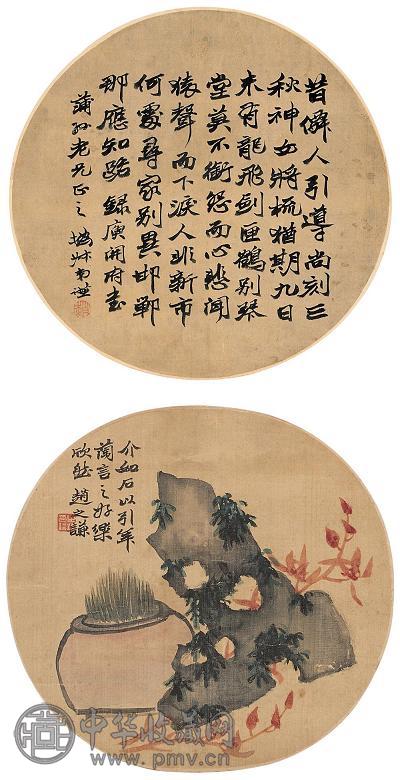 昔僊人引導尚刻三
秋神女將梳猶期九日
未有龍飛劍匣鶴別琴
堂莫不銜怨而心悲聞
猿聲而下淚人非新市
何處尋家別異邯鄲
那應知路 錄庾開府書
老兄正之 撝叔
介如石以引年
蘭言之好樂
欣然 趙之謙
中华收藏网
www.pmv.cn